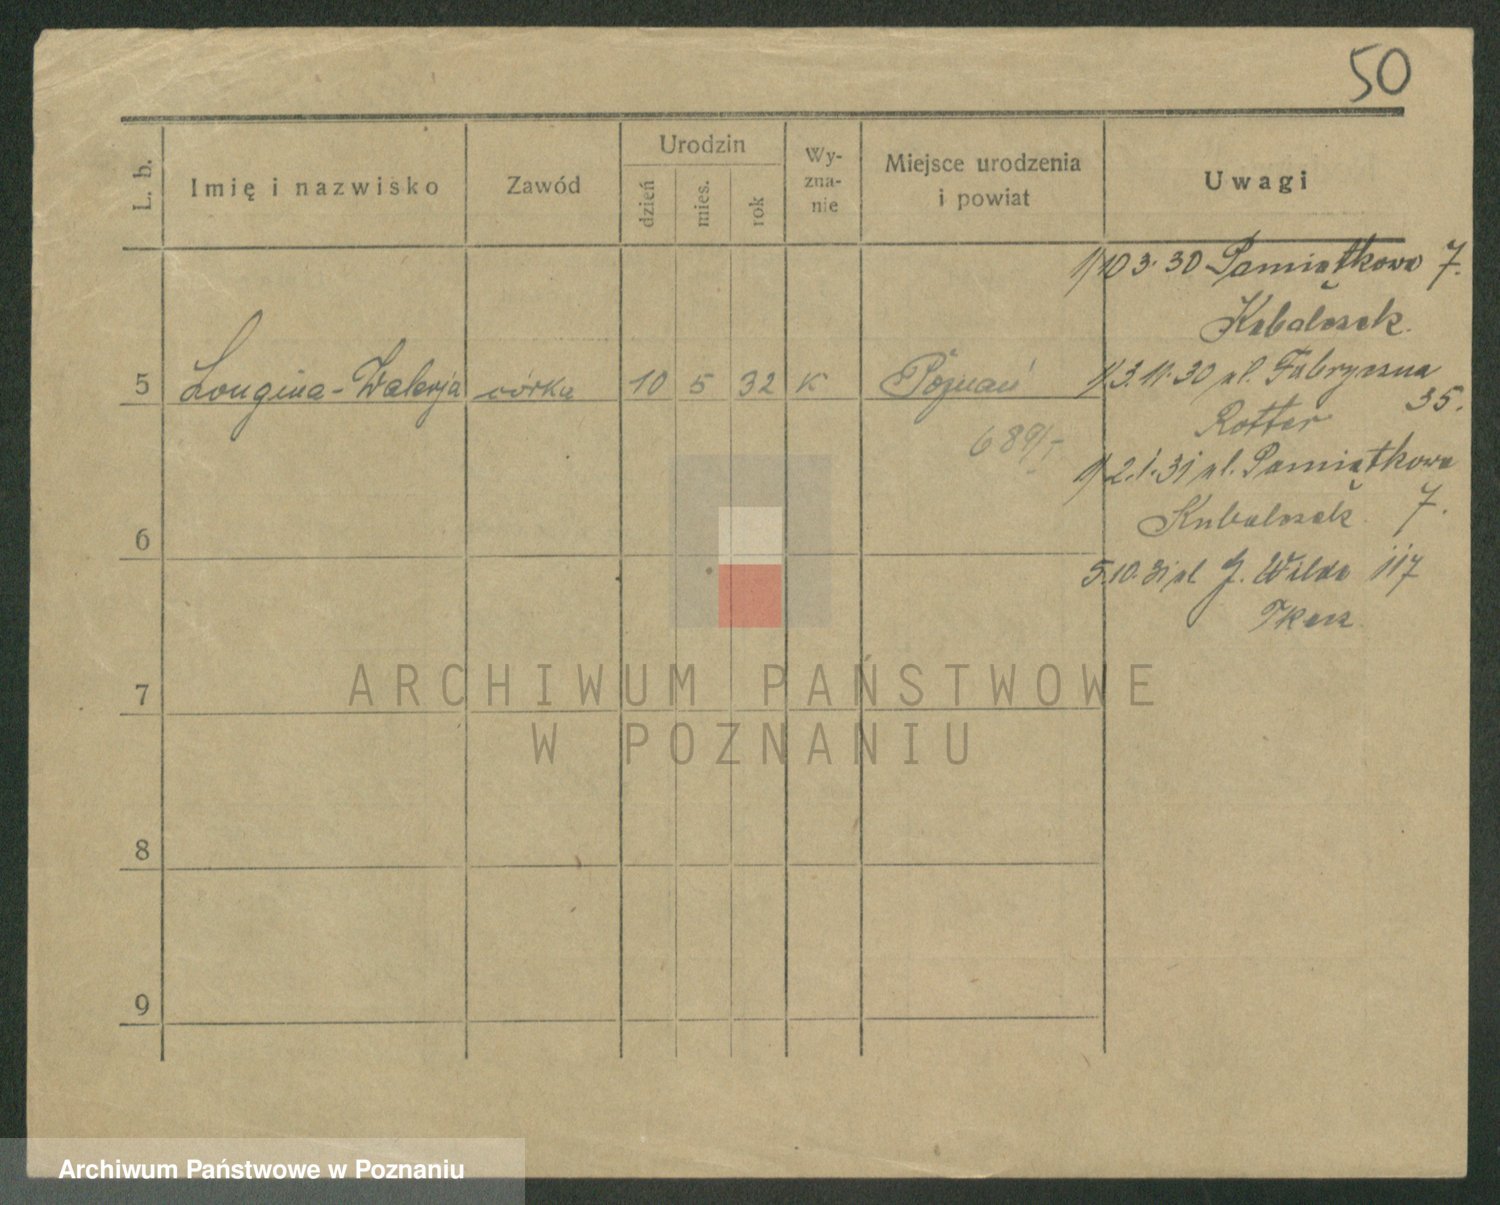 50
L. b.
Imię i nazwisko
Zawód
Urodzin
dzień
mies.
rok
Wy-
zna-
nie
Miejsce urodzenia
i powiat
Uwagi
1/10 3. 30 Pamiątkowa 7.
Kubalczak
5 Longina-Walerja córka 10 5 32 K Poznań
1/3.11.30 ul. Fabryczna
35.
Rotter
689/-
1/2.1.31 ul. Pamiątkowa
7.
Kubalczak
6
5.10.31 ul G. Wilda 117
Tkacz
7
8
9
ARCHIWUM PAŃSTWOWE
W POZNANIU
Archiwum Państwowe w Poznaniu